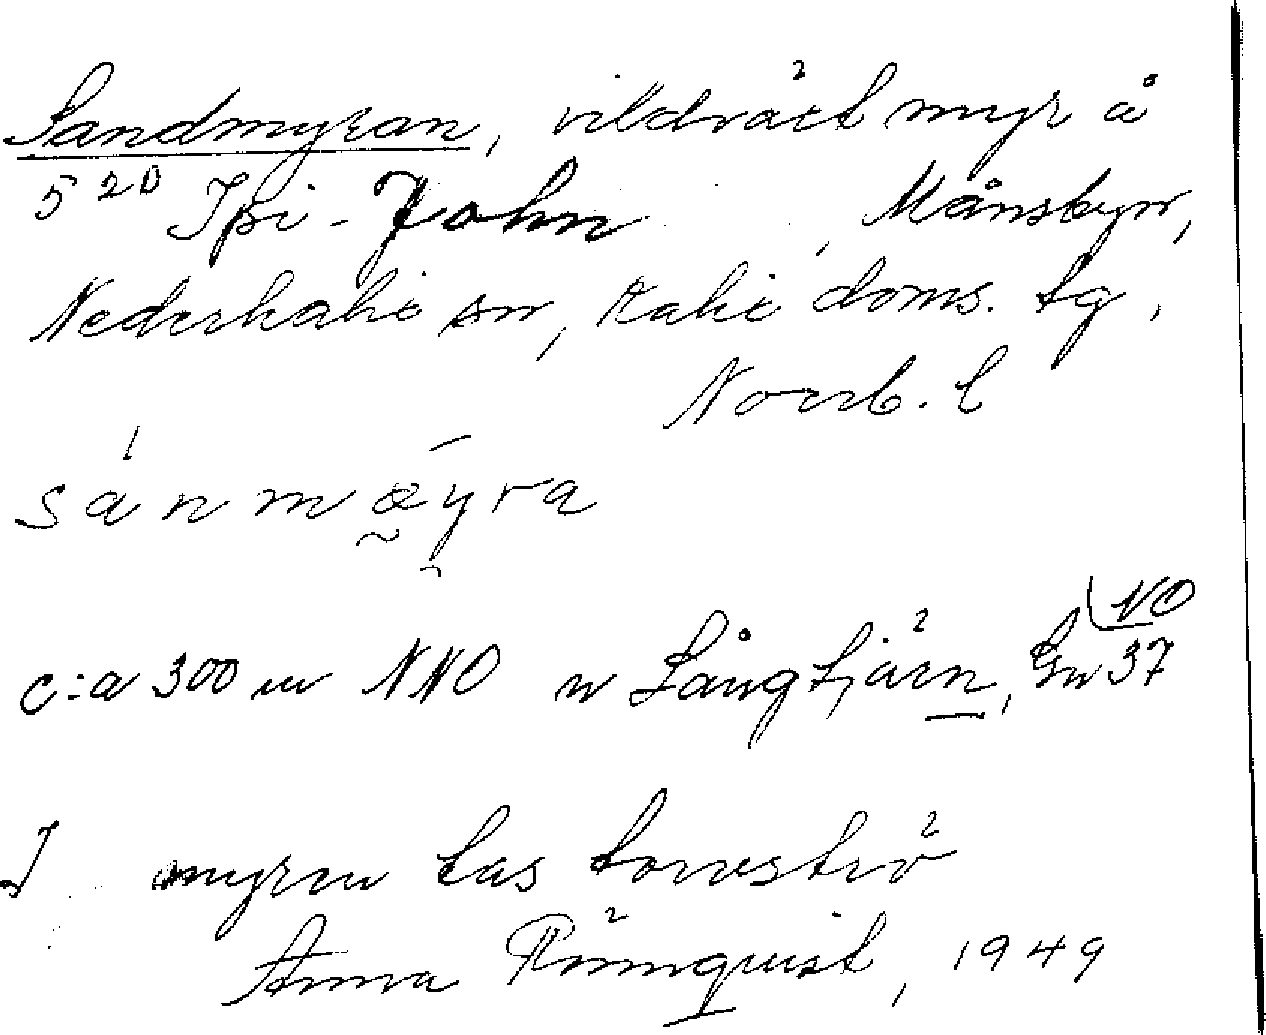 Sandmyran, vildvält myr å
5 20 Ipi-John, Månsbyn,
Nederkalix sn, Kalix doms. tg,
Norrb. l
sánmæyra
c:a 300 m NNO v Långtjärn, NO 37
I myren tas torvströ
Anna Rönnquist, 1949